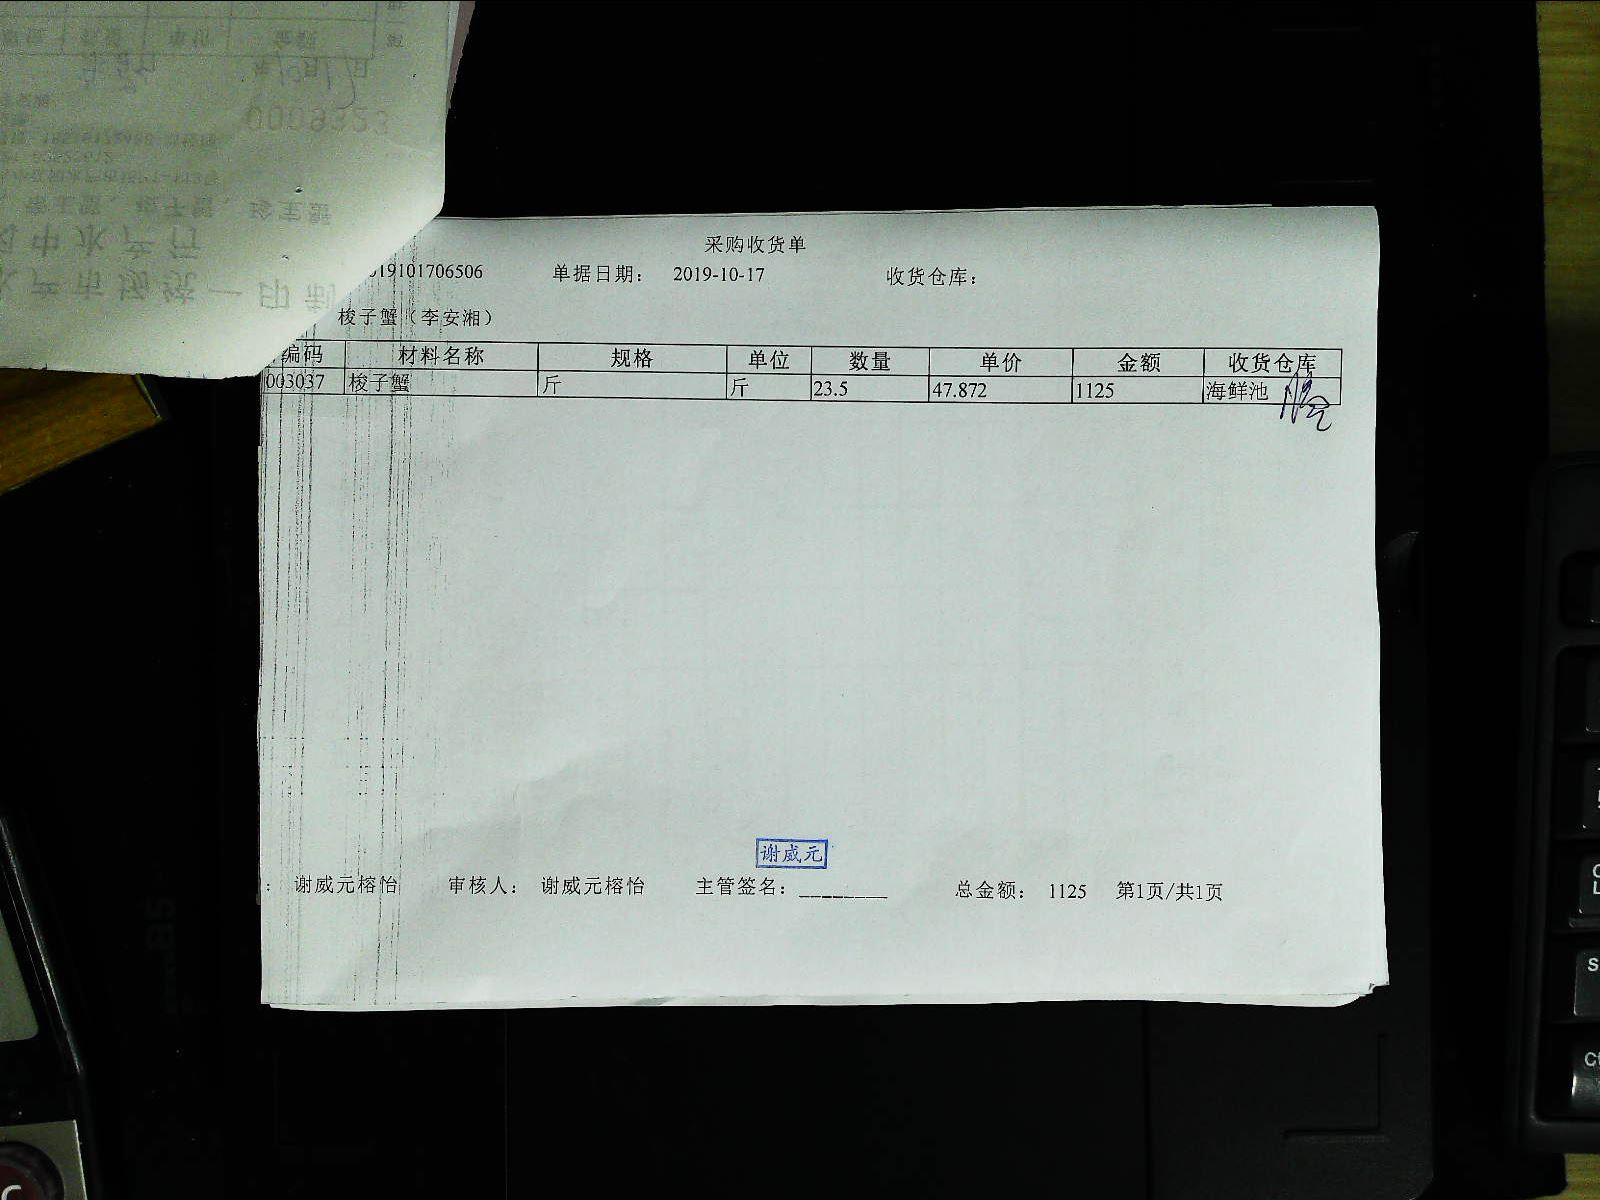 0009323
水产市场统一印制
中水产行
采购收货单
019101706506 单据日期： 2019-10-17 收货仓库：
梭子蟹（李安湘）
编码 材料名称 规格 单位 数量 单价 金额 收货仓库
003037 梭子蟹 斤 斤 23.5 47.872 1125 海鲜池
谢威元
： 谢威元榕怡 审核人： 谢威元榕怡 主管签名：________ 总金额： 1125 第1页/共1页